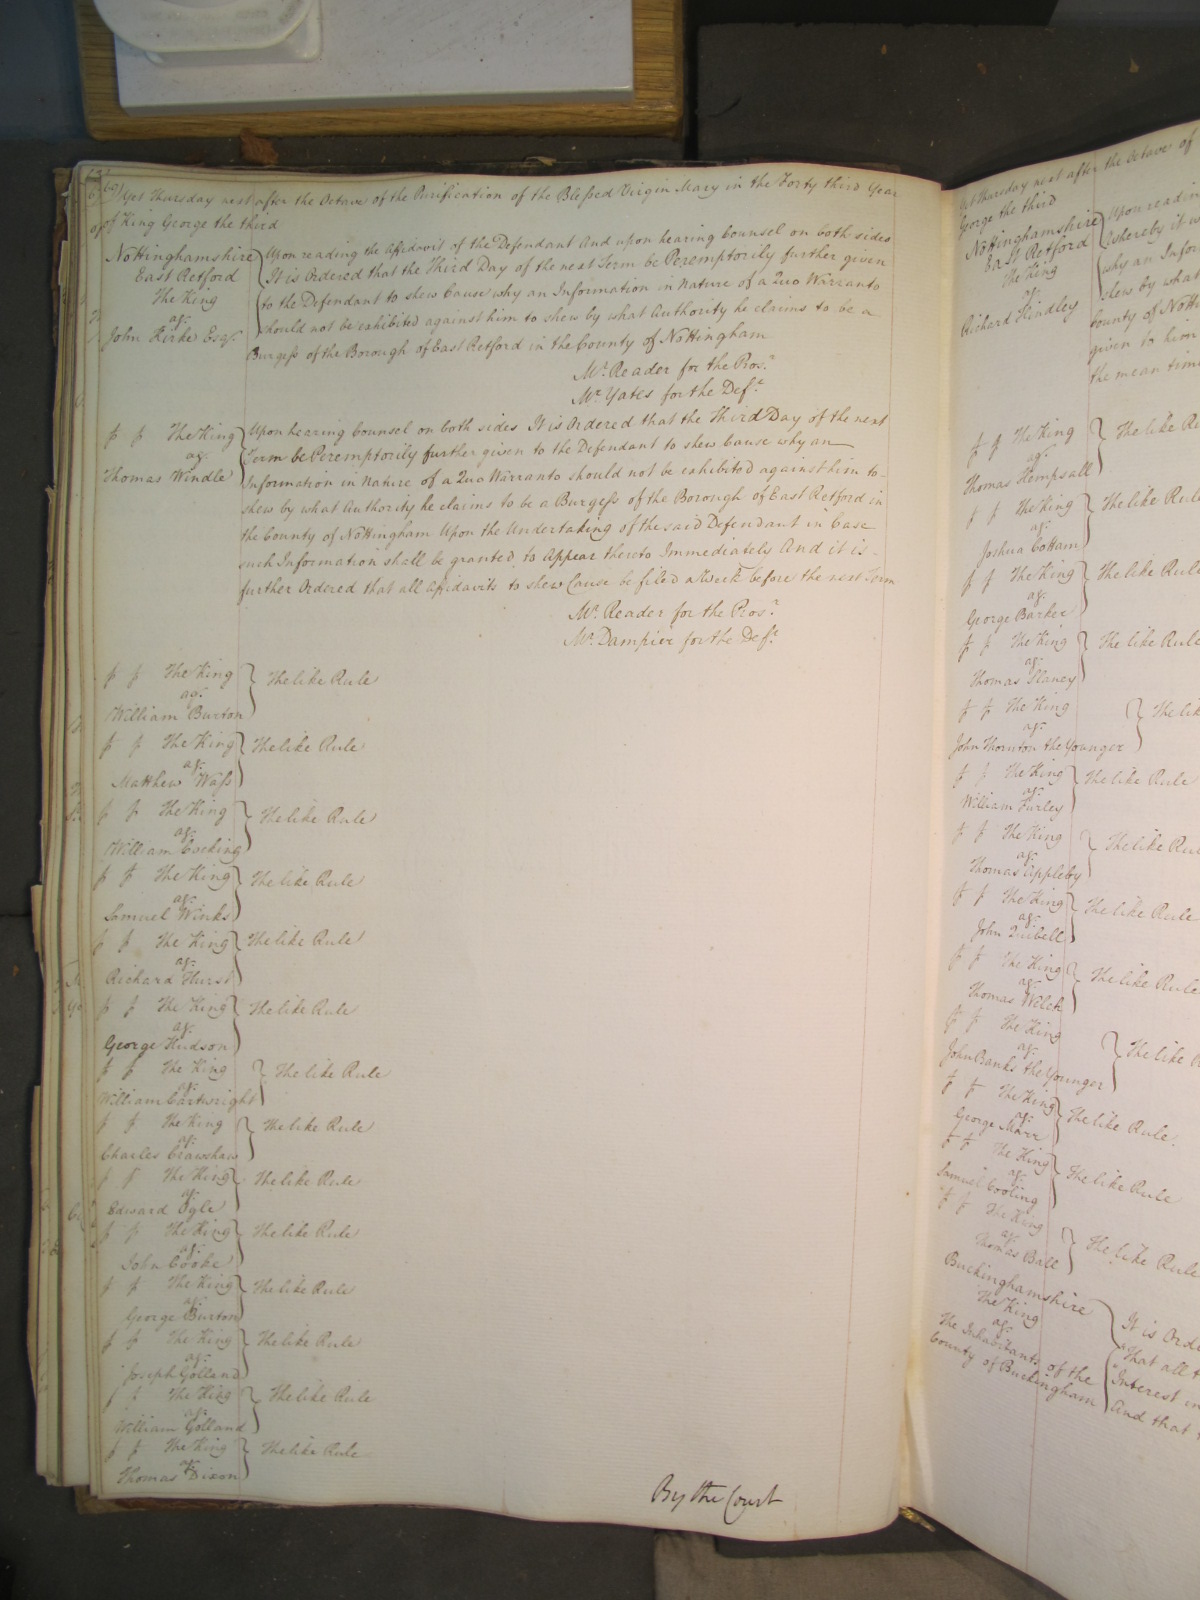 Yet Thursday next after the Octave of the Purification of the Blessed Virgin Mary in the Forty third Year
of King George the third
Nottinghamshire
East Retford
The King
agt.
John Kirke Esqr.
Upon reading the Affidavit of the Defendant And upon hearing Counsel on both sides
It is Ordered that the Third Day of the next Term be Peremptorily further given
to the Defendant to shew Cause why an Information in Nature of a Quo Warranto
should not be exhibited against him to shew by what Authority he claims to be a
Burgess of the Borough of East Retford in the County of Nottingham
Mr. Reader for the Pros.r
Mr. Yates for the Def.t
The King
agt.
Thomas Windle
Upon hearing Counsel on both sides It is Ordered that the Third Day of the next
Term be Peremptorily further given to the Defendant to shew Cause why an
Information in Nature of a Quo Warranto should not be exhibited against him to
shew by what Authority he claims to be a Burgess of the Borough of East Retford in
the County of Nottingham Upon the Undertaking of the said Defendant in Case
such Information shall be granted to Appear thereto Immediately And it is
further Ordered that all Affidavits to shew Cause be filed a Week before the next Term
Mr. Reader for the Pros.r
Mr. Dampier for the Def.t
The King
agt.
William Burton
The like Rule
The King
agt.
Matthew Wass
The like Rule
The King
agt.
William Cocking
The like Rule
The King
agt.
Samuel Winks
The like Rule
The King
agt.
Richard Hurst
The like Rule
The King
agt.
George Hudson
The like Rule
The King
agt.
William Cartwright
The like Rule
The King
agt.
Charles Crawshaw
The like Rule
The King
agt.
Edward Ogle
The like Rule
The King
agt.
John Cooke
The like Rule
The King
agt.
George Burton
The like Rule
The King
agt.
Joseph Golland
The like Rule
The King
agt.
William Golland
The like Rule
The King
agt.
Thomas Dixon
The like Rule
By the Court
Yet Thursday next after the Octave of
George the third
Nottinghamshire
East Retford
The King
agt.
Richard Hindley
Upon readin
whereby it w
why an Infor
shew by what
County of Notti
given to him
the mean time
The King
agt.
Thomas Hempsall
The like Ru
The King
agt.
Joshua Cottam
The like Rule
The King
agt.
George Barker
The like Rule
The King
agt.
Thomas Slaney
The like Rule
The King
agt.
John Thornton the Younger
The lik
The King
agt.
William Furley
The like Rule
The King
agt.
Thomas Appleby
The like Rul
The King
agt.
John Quibell
The like Rule
The King
agt.
Thomas Welch
The like Rule
The King
agt.
John Banks the Younger
The like R
The King
agt.
George Marr
The like Rule
The King
agt.
Samuel Cooling
The like Rule
The King
agt.
Thomas Ball
The like Rule
Buckinghamshire
The King
agt.
The Inhabitants of the
County of Buckingham
It is Orde
That all t
Interest in
And that